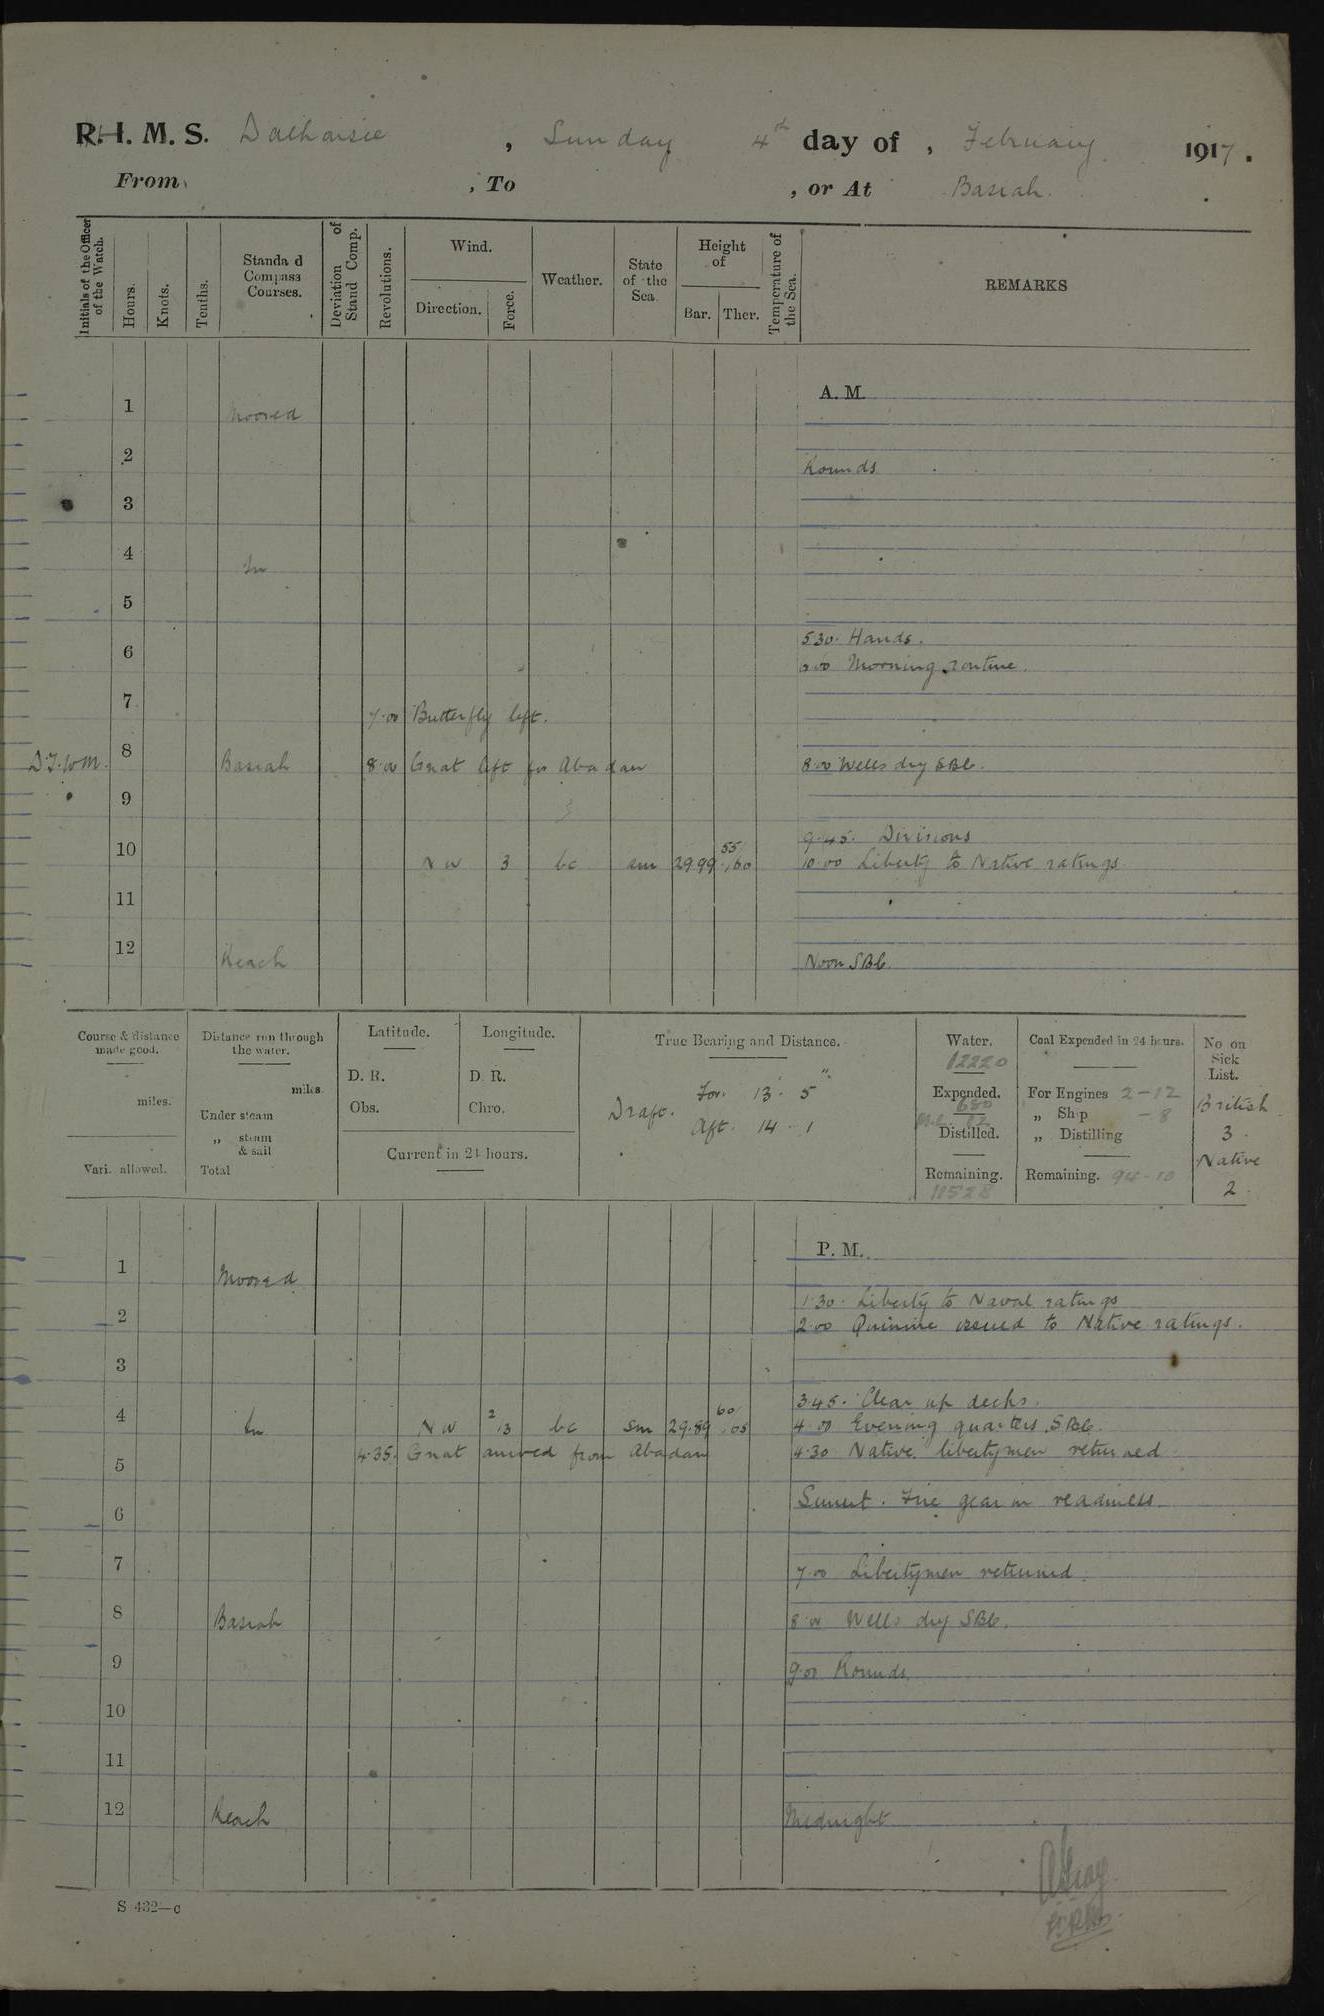 R.I. M. S. Dalhousie , Sunday 4th day of , February 1917.
From , To , or At Basrah.
Initials of the Officer of the Watch.
Hours.
Knots.
Tenths.
Standa d Compass Courses.
Deviation of Stand Comp.
Revolutions.
Wind.
Direction.
Force.
Weather.
State of the Sea.
Height of
Bar.
Ther.
Temperature of the Sea.
REMARKS
A. M.
1 Moored
2 Rounds
3
4 In
5
5.30. Hands.
6 6.00 Morning routine.
7 7.00 Butterfly left.
D.J.WM. 8 Basrah 8.00 Gnat left for Abadan 8.00 Wells dry SBC.
9
9.45. Divisions
55
10 NW 3 bc sm 29.99 60 10.00 Liberty to Native ratings
11
12 Reach Noon SBC.
Course & distance made good.
miles.
Vari. allowed.
Distance run through the water.
miles
Under steam
„ steam & sail
Total
Latitude.
D. R.
Obs.
Longitude.
D. R.
Chro.
Current in 24 hours.
True Bearing and Distance.
Draft. For. 13' 5"
Aft. 14 . 1
Water.
12220
Expended.
680
12
Distilled.
Remaining.
11528
Coal Expended in 24 hours.
For Engines 2-12
„ Ship - 8
„ Distilling
Remaining. 94-10
No on Sick List.
British
3.
Native
2.
P. M.
1 Moored
1.30. Liberty to Naval ratings
2 2.00 Quinine issued to Native ratings.
3
3.45. Clear up decks.
60
4 In NW 2/3 bc sm 29.89 .65 4.00 Evening quarters. SBC.
4.35. Gnat arrived from Abadan 4.30 Native libertymen returned
5
Sunset. Fire gear in readiness.
6
7 7.00 Libertymen returned.
8 Basrah 8.00 Wells dry SBC.
9 9.00 Rounds.
10
11
12 Reach Midnight
S 432—c